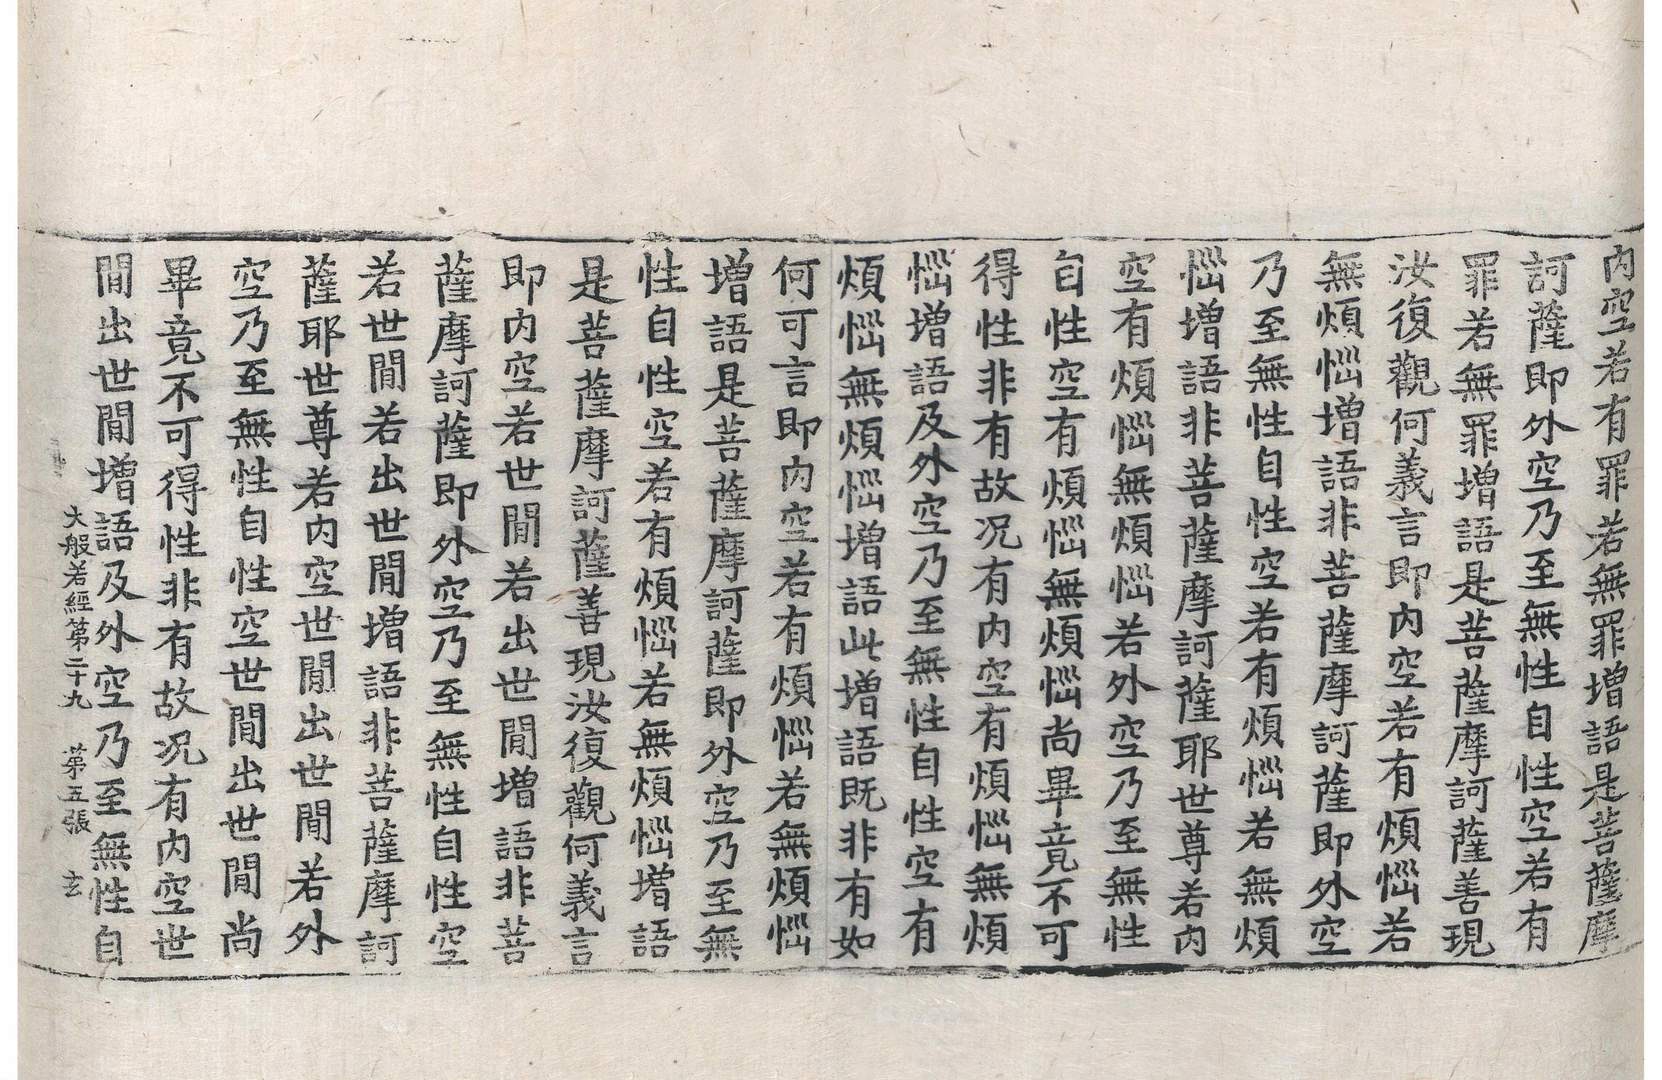 内空若有罪若無罪增語是菩薩摩
訶薩即外空乃至無性自性空若有
罪若無罪增語是菩薩摩訶薩善現
汝復觀何義言即內空若有煩惱若
無煩惱增語非菩薩摩訶薩即外空
乃至無性自性空若有煩惱若無煩
惱增語非菩薩摩訶薩耶世尊若內
空有煩惱無煩惱若外空乃至無性
自性空有煩惱無煩惱尚畢竟不可
得性非有故况有內空有煩惱無煩
惱增語及外空乃至無性自性空有
煩惱無煩惱增語此增語既非有如
何可言即內空若有煩惱若無煩惱
增語是菩薩摩訶薩即外空乃至無
性自性空若有煩惱若無煩惱增語
是菩薩摩訶薩善現汝復觀何義言
即內空若世間若出世間增語非菩
薩摩訶薩即外空乃至無性自性空
若世間若出世間增語非菩薩摩訶
薩耶世尊若內空世間出世間若外
空乃至無性自性空世間出世間尚
畢竟不可得性非有故况有內空世
間出世間增語及外空乃至無性自
大般若經第二十九 第五張 玄